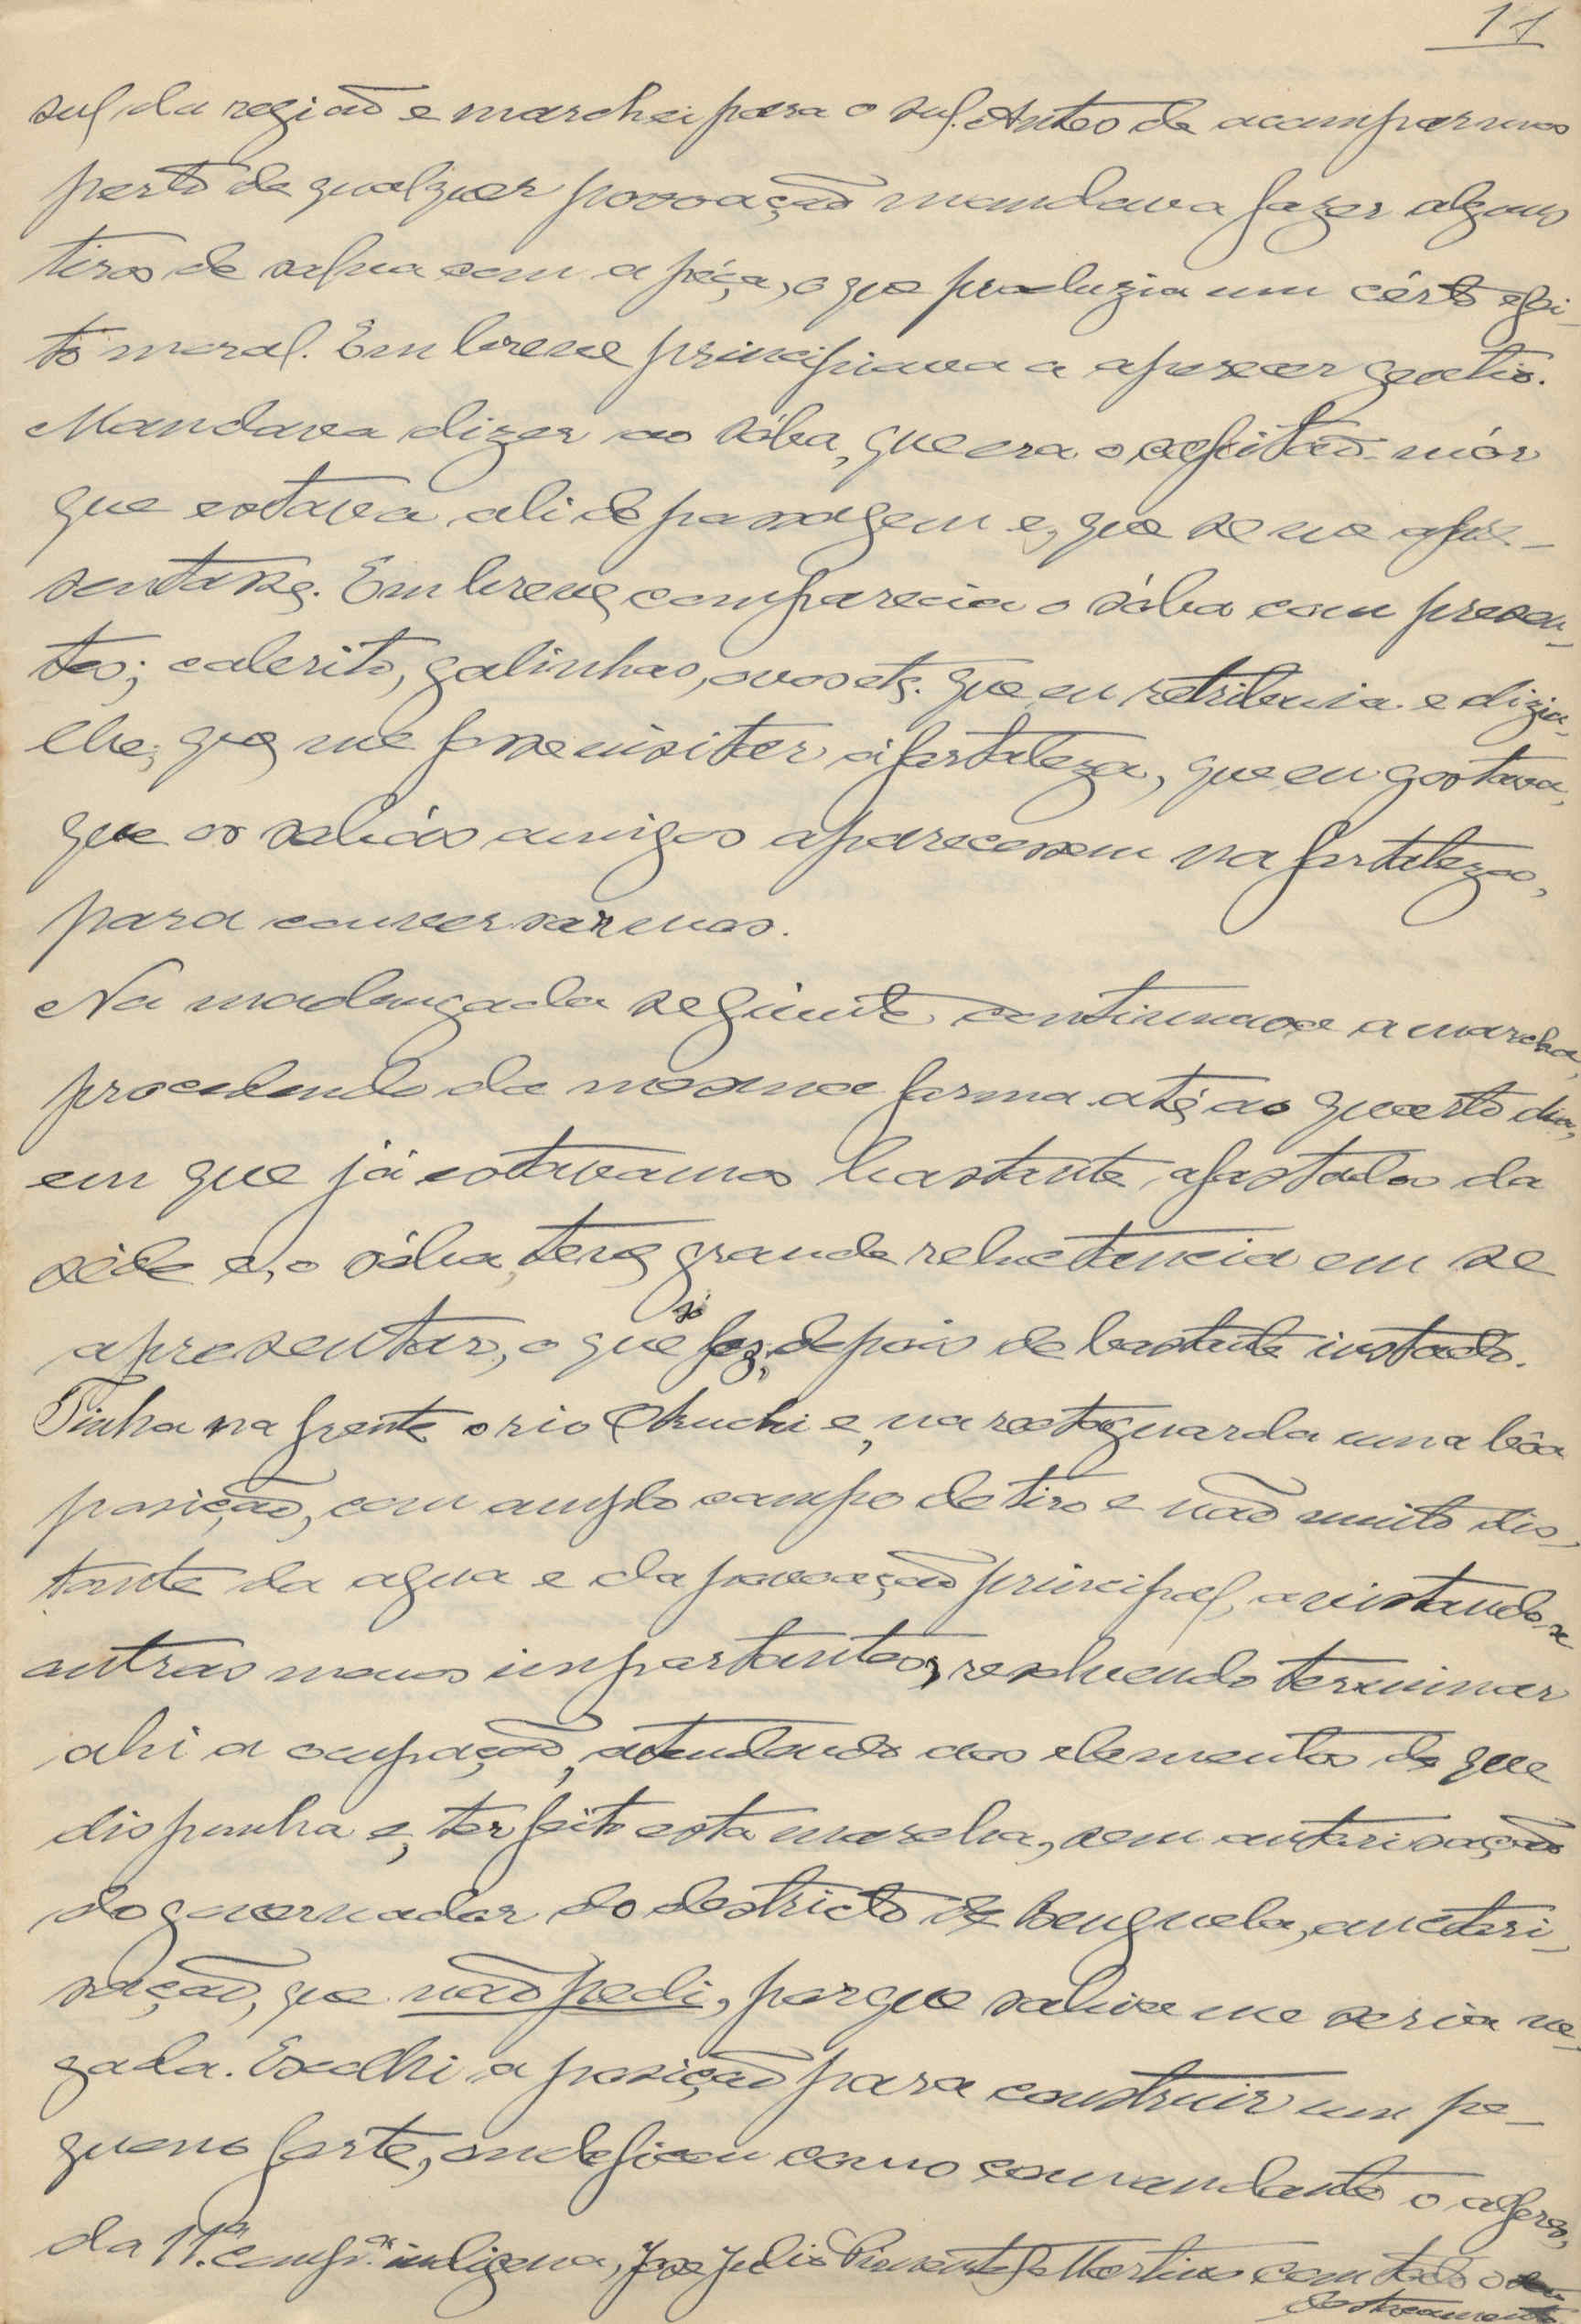 11
sul da região e marchei para o sul. Antes de acamparmos
perto de qualquer povoação mandava fazer alguns
tiros de salva com a péça, o que produzia um cérto efei-
to moral. Em breve principiava a aparecer gentio.
Mandava dizer ao sóba, que era o capitão-mór
que estava ali de passagem e, que se me apre-
sentasse. Em breve, comparecia o sóba com presen-
tes; cabrito, galinhas, ovos etc. que eu retribuia e dizia-
lhe, que me fosse visitar á fortaleza, que eu gostava,
que os sobas amigos aparecessem na fortaleza,
para conversarmos.
Na madrugada seguinte continuava a marcha,
procedendo da mesma forma até, ao quarto dia,
em que já estavamos bastante, afastados da
séde e, o sóba, teve grande reluctancia em se
apresentar, o que só fez, depois de bastante instado.
Tinha na frente o rio Okuchi e, na rectaguarda uma bôa
posição, com amplo campo de tiro e não muito dis-
tante da agua e da povoação principal, avistando-se
outras menos importantes, resolvendo terminar
ahi a ocupação, atendendo aos elementos de que
dispunha e, ter feito esta marcha, sem autorisação
do governador do destricto de Benguela, auctori-
sação, que não pedi, porque sabia me seria ne-
gada. Escolhi a posição para construir um pe-
queno forte, onde ficou como comandante o alferes,
da 11.ª comp.ª indigena, José Julio Pimentel Martins com todo o seu
destacamento